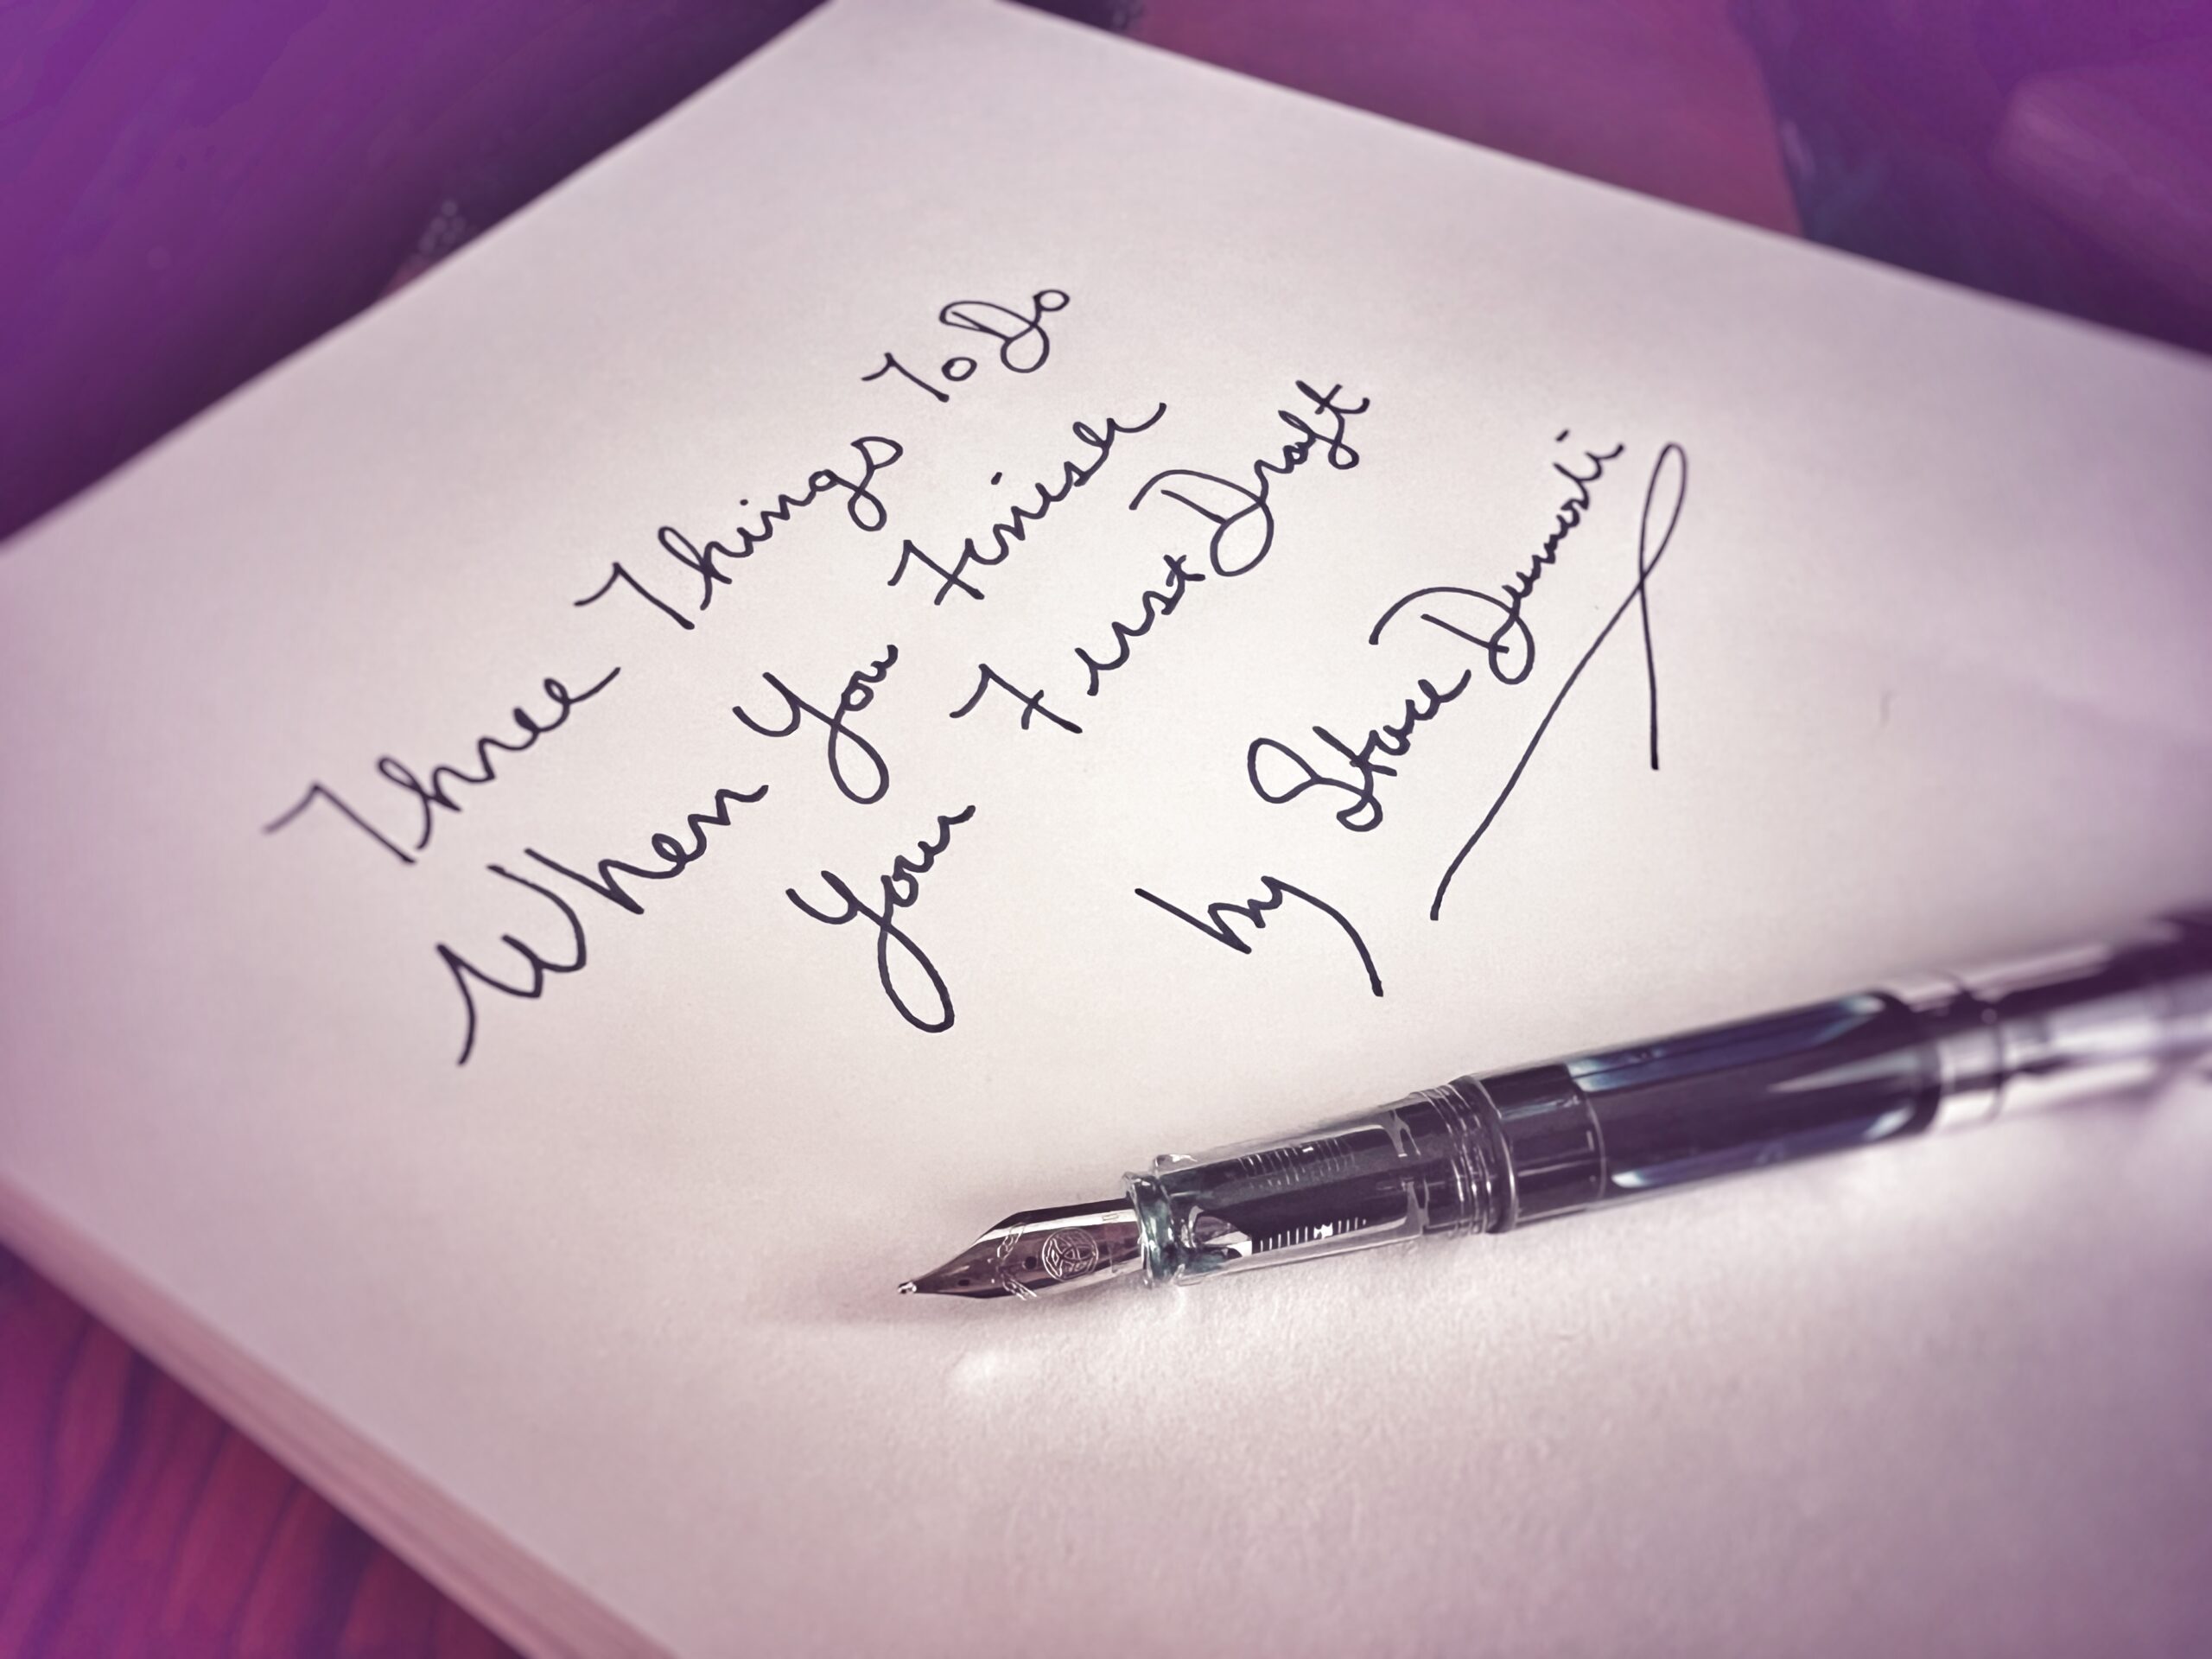 Three Things To Do
When You Finish
Your First Draft
by Stace Dumoski